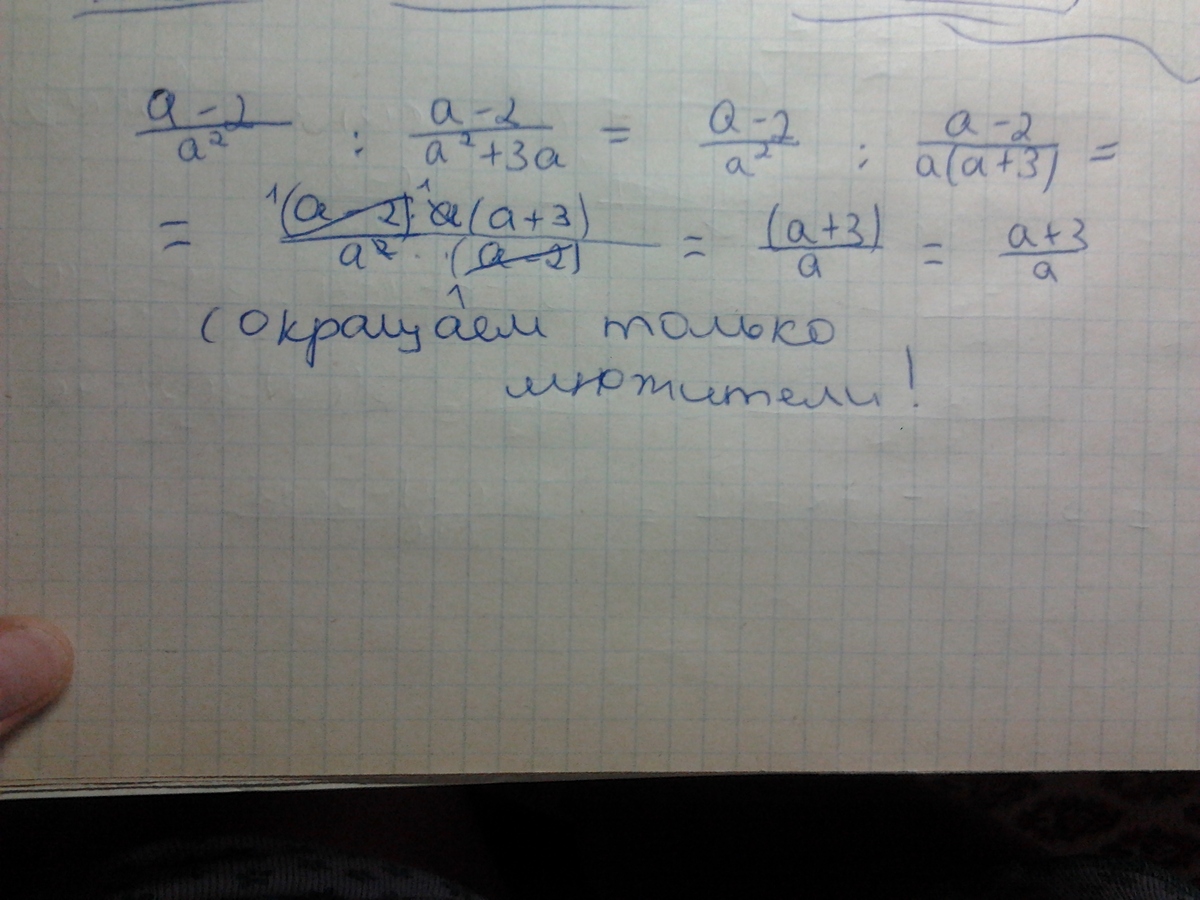 a-2/a² : a-2/a²+3a = a-2/a² : a-2/a(a+3) =
= ¹(a-2)·¹a(a+3)/a²·(a-2)₁ = (a+3)/a = a+3/a
(окращаем только
множители!